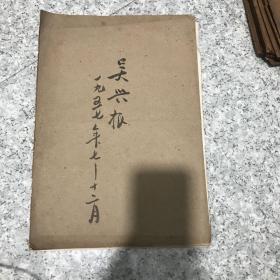 吴兴根
一九五七年七—十二月